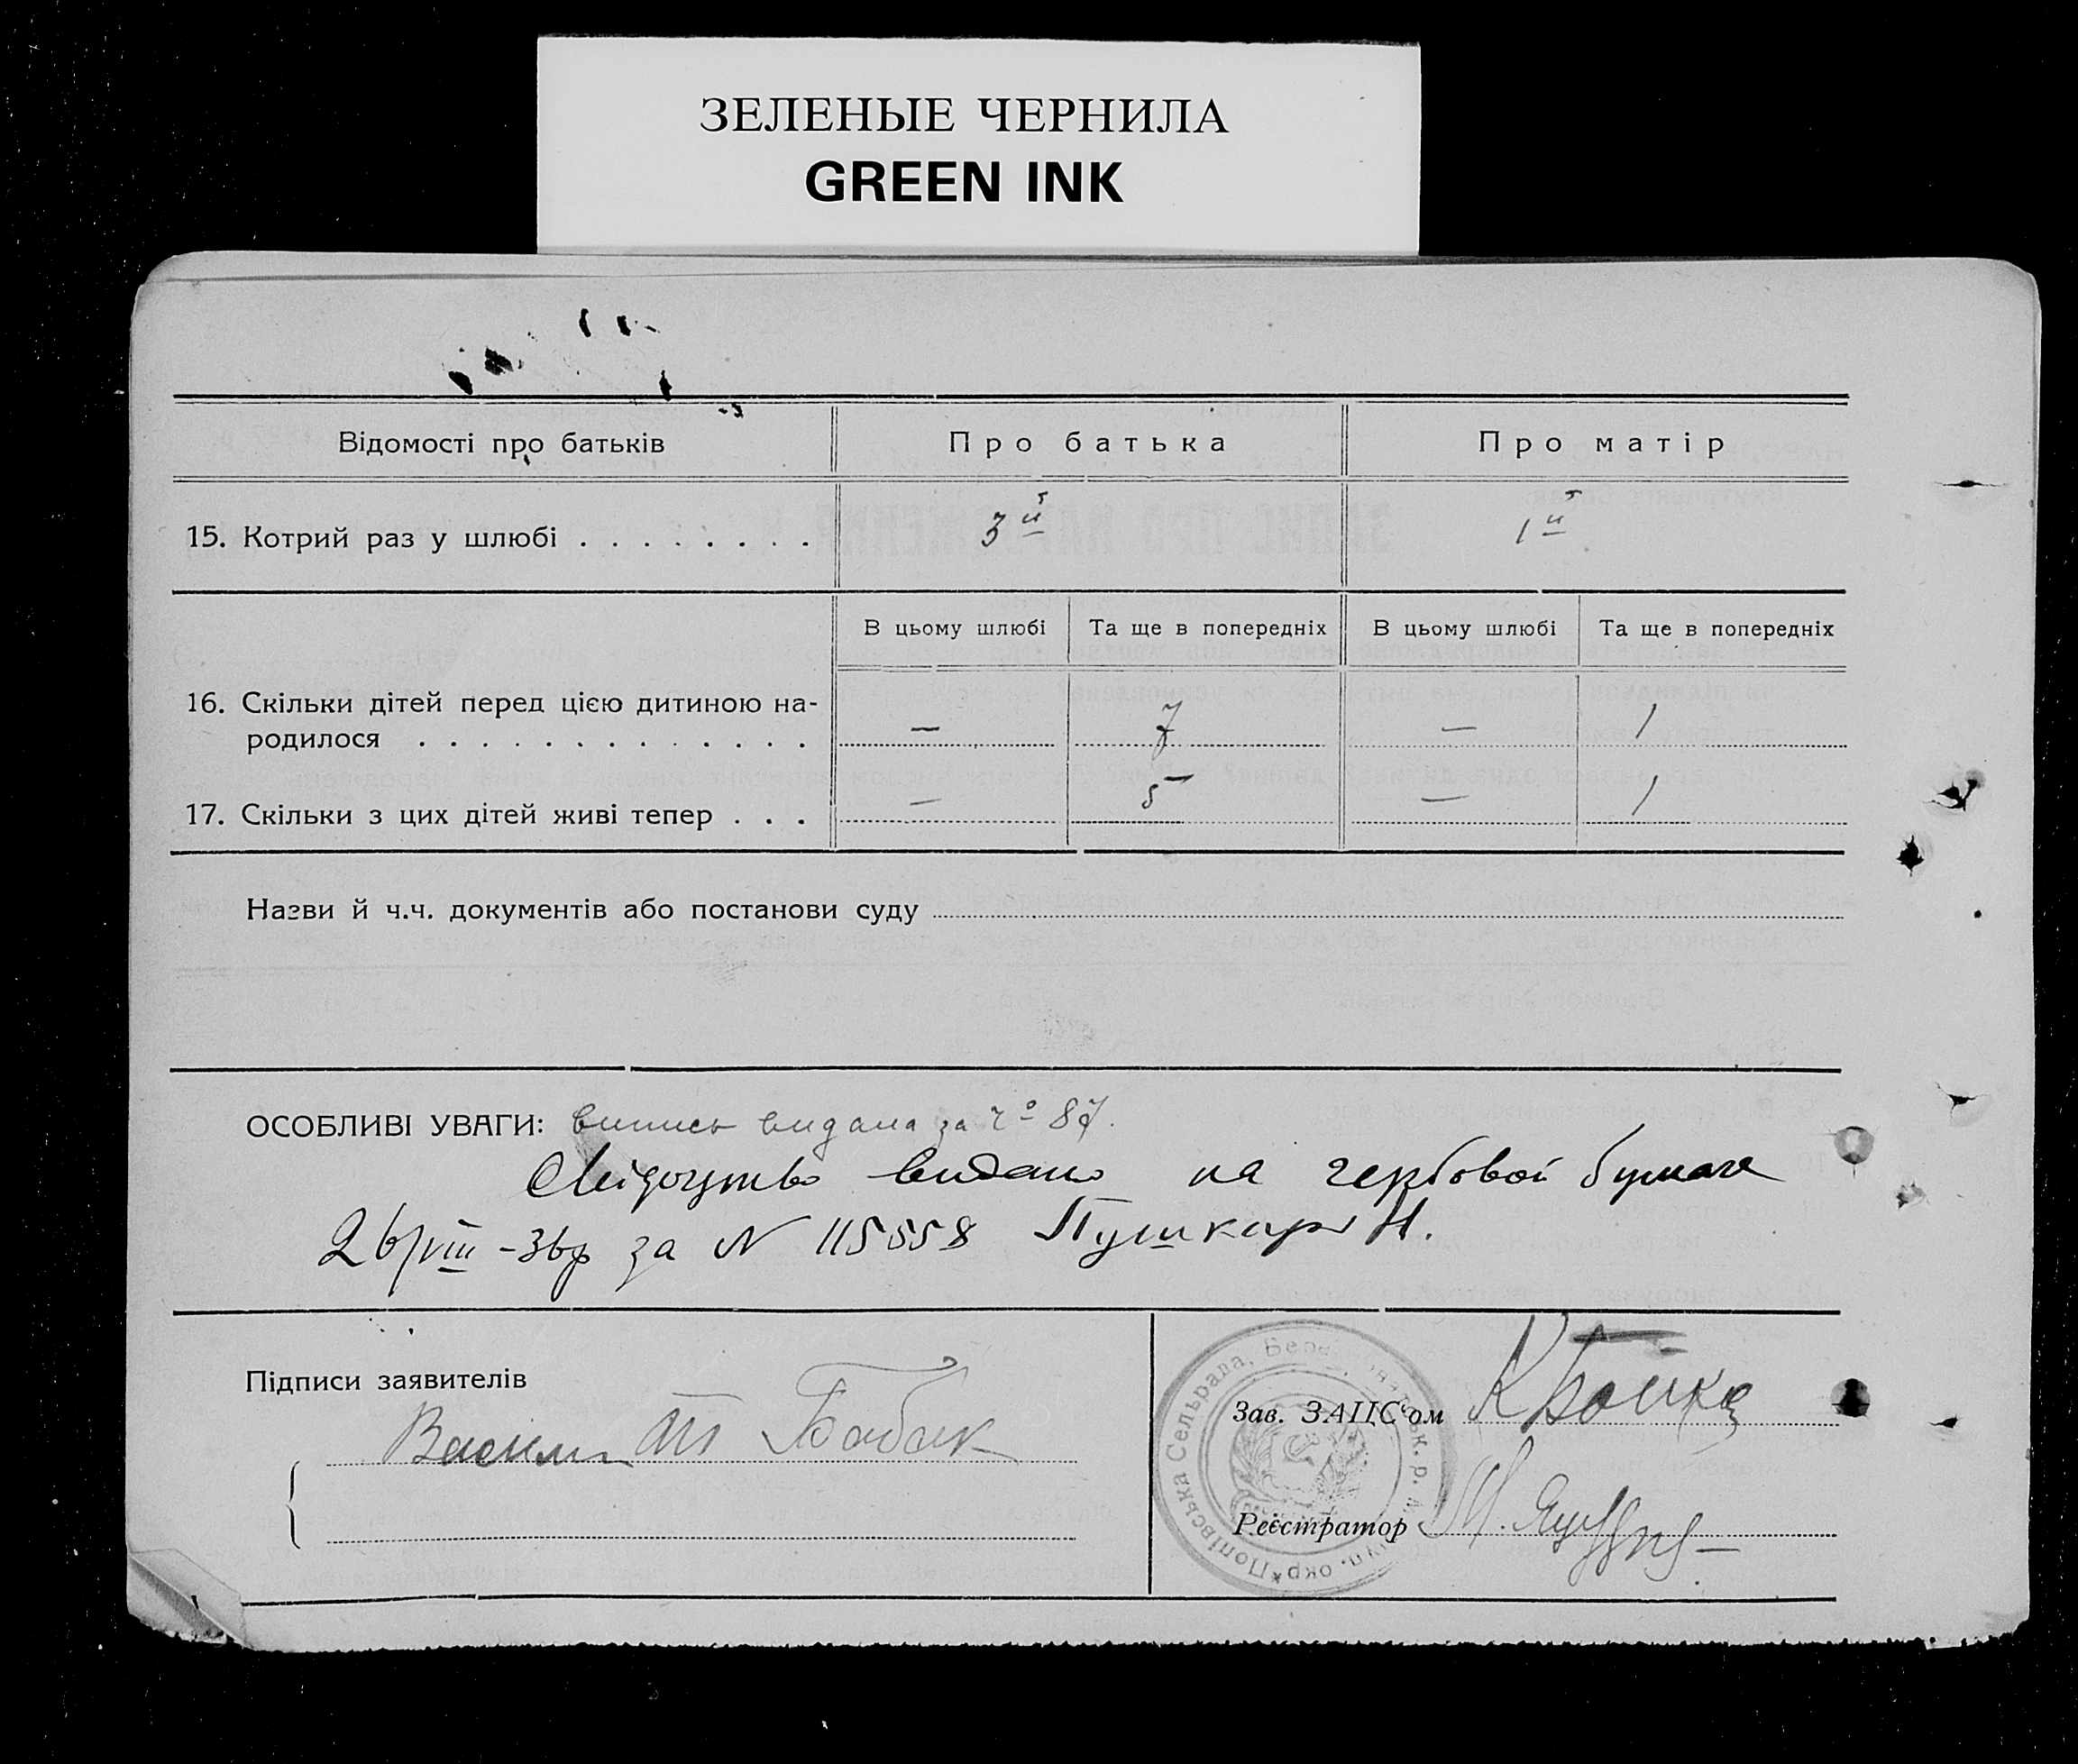 ЗЕЛЕНЫЕ ЧЕРНИЛА
GREEN INK
Відомості про батьків
Про батька
Про матір
15. Котрий раз у шлюбі . . . . . . . .
3й
1й
В цьому шлюбі
Та ще в попередніх
В цьому шлюбі
Та ще в попередніх
16. Скільки дітей перед цією дитиною на-
родилося . . . . . . . . . . . . .
—
7
—
1
17. Скільки з цих дітей живі тепер . . .
—
5
—
1
Назви й ч.ч. документів або постанови суду
ОСОБЛИВІ УВАГИ: випись видана за ч° 87.
Свідоцтво видано на гербовой бумаге
26/VIII-36р за N 115558 Пушкарь Н.
Підписи заявителів
Бабак
Зав. ЗАЦС'ом К Бойко
Реєстратор М.
Попівська Сельрада, окр